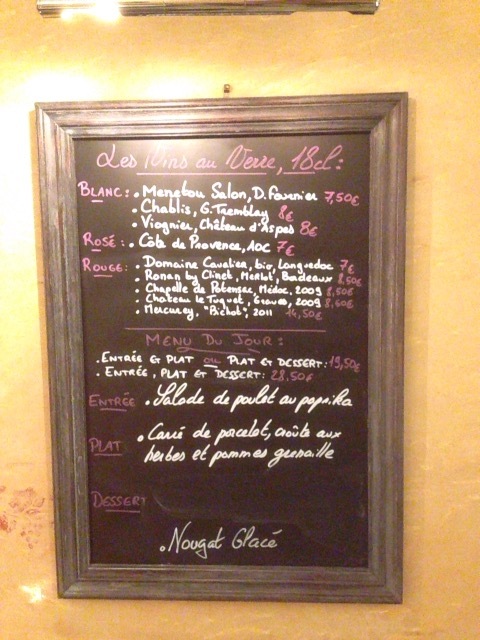 Les Vins au Verre, 18cl:
BLANC: • Menetou Salon, D. Fournier 7,50€
• Chablis, G. Tremblay 8€
• Viognier, Château d'Aspes 8€
ROSÉ: • Côte de Provence, AOC 7€
ROUGE: • Domaine Cavalier, bio, Languedoc 7€
• Ronan by Clinet, Merlot, Bordeaux 8,50€
• Chapelle de Potensac, Médoc, 2009 8,50€
• Château le Tuquet, Graves, 2009 8,60€
• Mercurey, "Pichot", 2011 14,50€
MENU DU JOUR:
• ENTRÉE ET PLAT OU PLAT ET DESSERT: 19,50€
• ENTRÉE, PLAT ET DESSERT: 28,50€
ENTRÉE • Salade de poulet au paprika
PLAT • Carré de porcelet, croûte aux
herbes et pommes grenaille
DESSERT
• Nougat Glacé